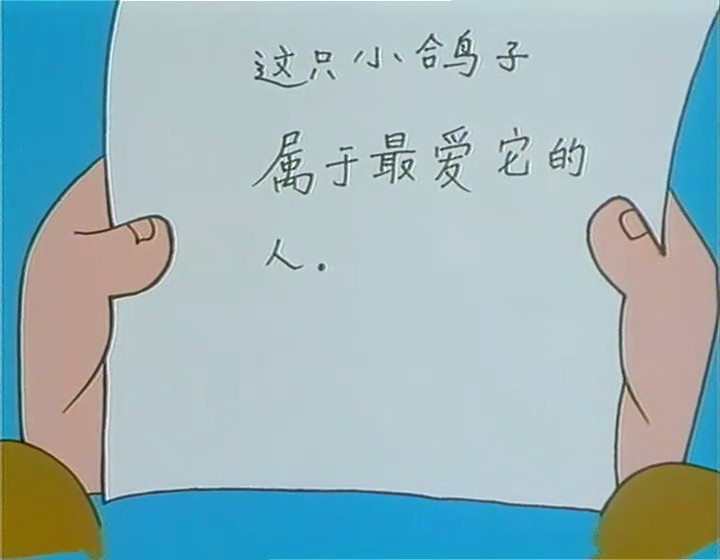 这只小鸽子
属于最爱它的
人.